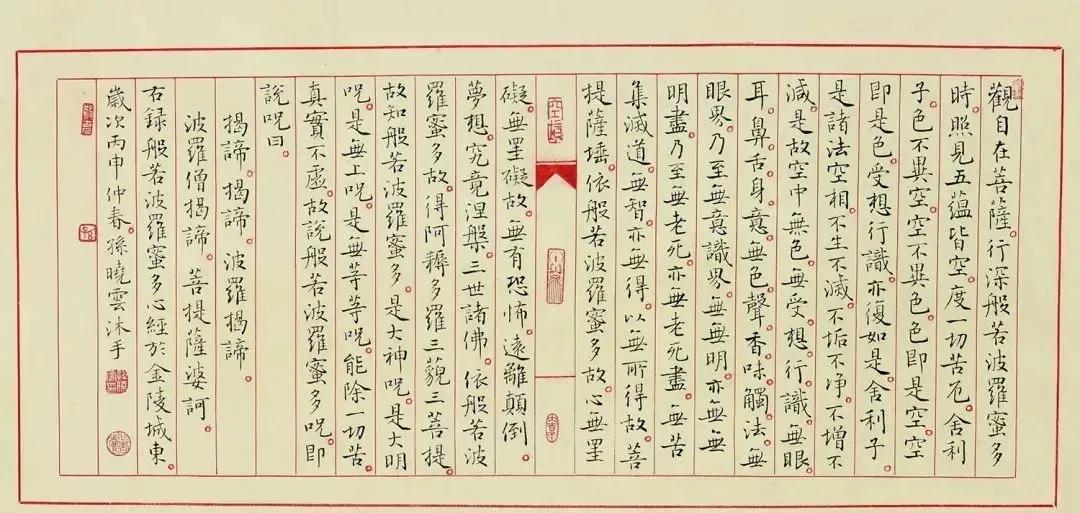 觀自在菩薩。行深般若波羅蜜多
時。照見五蘊皆空。度一切苦厄。舍利
子。色不異空。空不異色。色即是空。空
即是色。受想行識。亦復如是。舍利子。
是諸法空相。不生不滅。不垢不淨。不增不
減。是故空中無色。無受。想。行。識。無眼。
耳。鼻。舌。身。意。無色。聲。香。味。觸。法。無
眼界。乃至無意識界。無無明。亦無無
明盡。乃至無老死。亦無老死盡。無苦
集滅道。無智。亦無得。以無所得故。菩
提薩埵。依般若波羅蜜多故。心無罣
礙。無罣礙故。無有恐怖。遠離顛倒。
夢想。究竟涅槃。三世諸佛。依般若波
羅蜜多故。得阿耨多羅三藐三菩提。
故知般若波羅蜜多。是大神咒。是大明
咒。是無上咒。是無等等咒。能除一切苦。
真實不虛。故說般若波羅蜜多咒。即
說咒曰。
揭諦。揭諦。波羅揭諦。
波羅僧揭諦。菩提薩婆訶。
右録般若波羅蜜多心經於金陵城東。
歲次丙申仲春。孫曉雲沐手